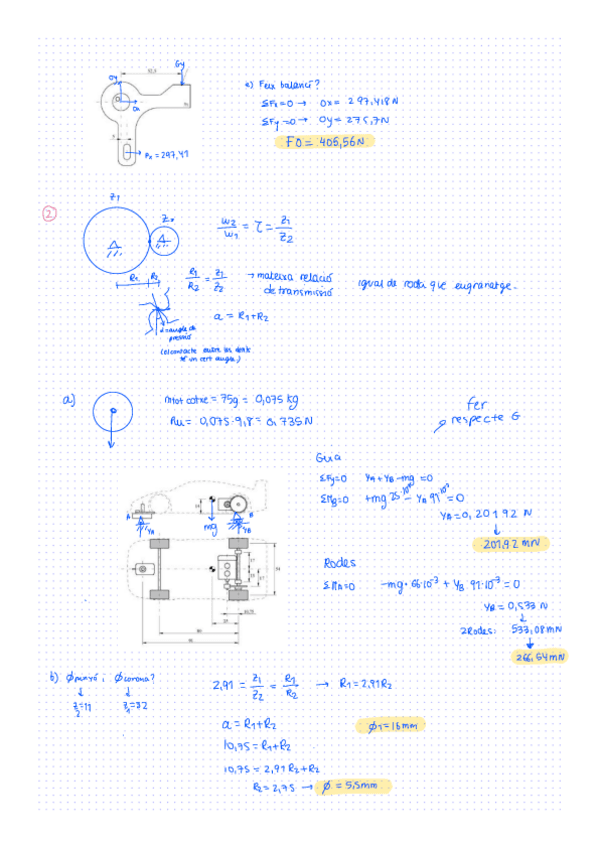 Gy
Oy
O
Ox
Px = 297,41
c) Feix balancí?
ΣFx=0 → Ox = 297,418 N
ΣFy=0 → Oy = 275,7N
FO = 405,56N
2
Z1
Z2
ω2/ω1 = τ = Z1/Z2
R1 R2
R1/R2 = Z1/Z2 → mateixa relació de transmissió
igual de roda que engranatge.
α=angle de pressió
a = R1+R2
(el contacte entre les dents té un cert angle.)
a)
mtot cotxe = 75g = 0,075 kg
= 0,075·9,8 = 0,735N
fer
respecte G
Guia
ΣFy=0 YA+YB-mg=0
ΣMB=0 +mg 25·10⁻³ - YA 91·10⁻³ = 0
YA=0,20192 N
↓
201,92 mN
A
YA
mg
B
YB
Rodes
ΣMA=0 -mg·66·10⁻³ + YB 91·10⁻³ = 0
YB = 0,533 N
↓
2Rodes: 533,08mN
↓
266,54mN
b) Øpinyó i Øcorona?
↓ ↓
Z2=11 Z1=32
2,91 = Z1/Z2 = R1/R2 → R1=2,91R2
a=R1+R2
Ø1=16mm
10,75=R1+R2
10,75 = 2,91R2+R2
R2=2,75 → Ø = 5,5mm